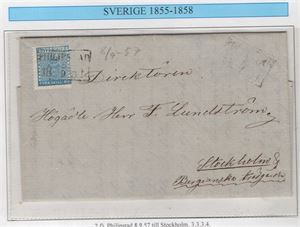 SVERIGE 1855-1858
PHILIPSTAD
8/9-57
18 9
Direktören
Högädle Herr F. Lundström
Stockholm
Bergianska
2 Q. Philipstad 8.9.57 till Stockholm. 3.3.3.4.